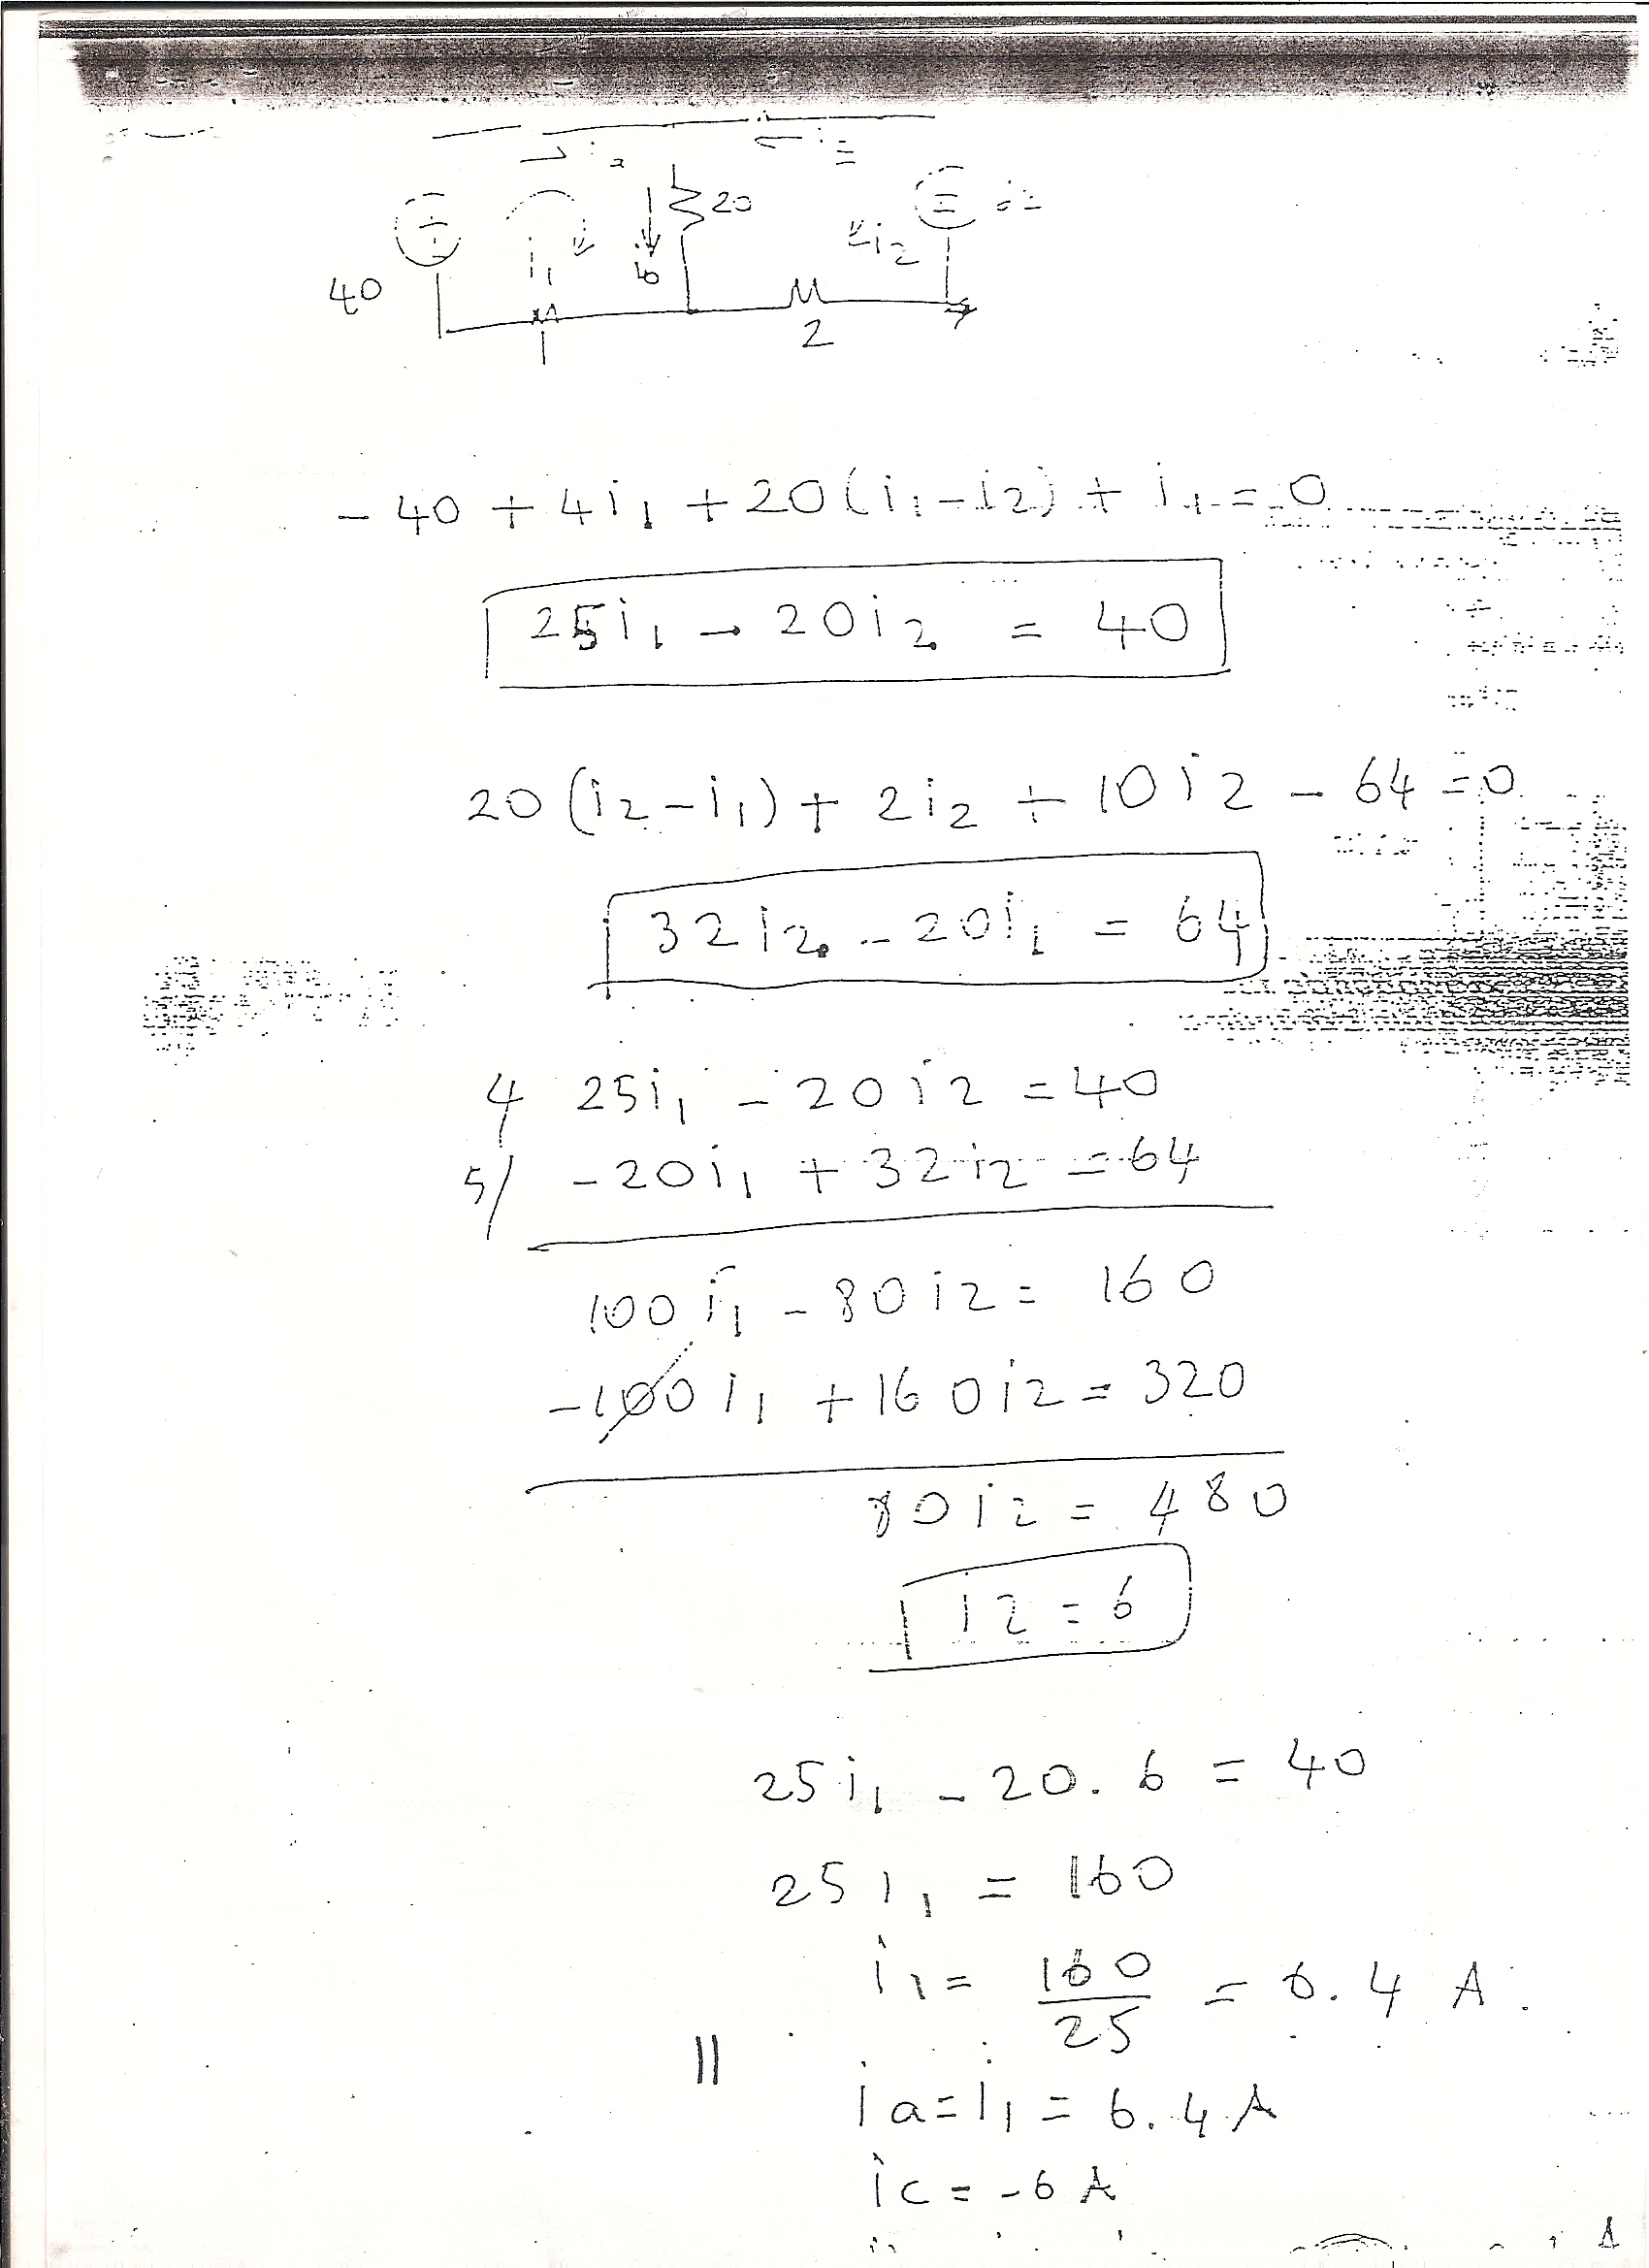 20
i2
40
i1
2
- 40 + 4i1 + 20(i1 - i2) + i1 = 0
25i1 - 20i2 = 40
20(i2 - i1) + 2i2 + 10i2 - 64 = 0
32i2 - 20i1 = 64
4/ 25i1 - 20i2 = 40
5/ -20i1 + 32i2 = 64
100i1 - 80i2 = 160
-100i1 + 160i2 = 320
80i2 = 480
i2 = 6
25i1 - 20.6 = 40
25i1 = 160
i1 = 160/25 = 6.4 A
ia = i1 = 6.4 A
ic = -6 A